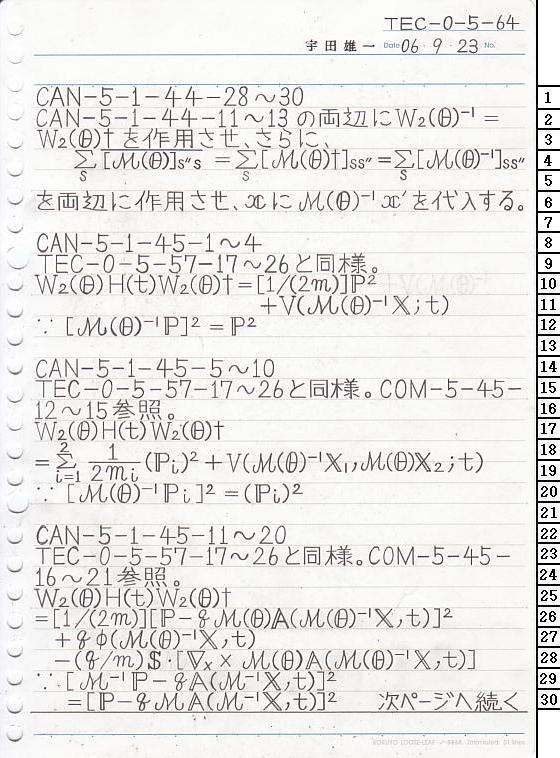 TEC-0-5-64
宇田雄一 Date 06・9・23 No.
CAN-5-1-44-28～30
CAN-5-1-44-11～13の両辺にW₂(θ)⁻¹=
W₂(θ)†を作用させ、さらに、
∑_S [ℳ(θ)]s″s =∑_S [ℳ(θ)†]ss″=∑_S [ℳ(θ)⁻¹]ss″
を両辺に作用させ、xにℳ(θ)⁻¹x′を代入する。
CAN-5-1-45-1～4
TEC-0-5-57-17～26と同様。
W₂(θ)H(t)W₂(θ)†=[1/(2m)]ℙ²
+V(ℳ(θ)⁻¹𝕏;t)
∵ [ℳ(θ)⁻¹ℙ]²=ℙ²
CAN-5-1-45-5～10
TEC-0-5-57-17～26と同様。COM-5-45-
12～15参照。
W₂(θ)H(t)W₂(θ)†
=∑_{i=1}^{2} 1/(2mᵢ) (ℙᵢ)²+V(ℳ(θ)⁻¹𝕏₁,ℳ(θ)𝕏₂;t)
∵ [ℳ(θ)⁻¹ℙᵢ]²=(ℙᵢ)²
CAN-5-1-45-11～20
TEC-0-5-57-17～26と同様。COM-5-45-
16～21参照。
W₂(θ)H(t)W₂(θ)†
=[1/(2m)][ℙ-qℳ(θ)𝔸(ℳ(θ)⁻¹𝕏,t)]²
+qφ(ℳ(θ)⁻¹𝕏,t)
-(q/m)𝕊・[∇ₓ×ℳ(θ)𝔸(ℳ(θ)⁻¹𝕏,t)]
∵ [ℳ⁻¹ℙ-q𝔸(ℳ⁻¹𝕏,t)]²
=[ℙ-qℳ𝔸(ℳ⁻¹𝕏,t)]² 次ページへ続く
1
2
3
4
5
6
7
8
9
10
11
12
13
14
15
16
17
18
19
20
21
22
23
24
25
26
27
28
29
30